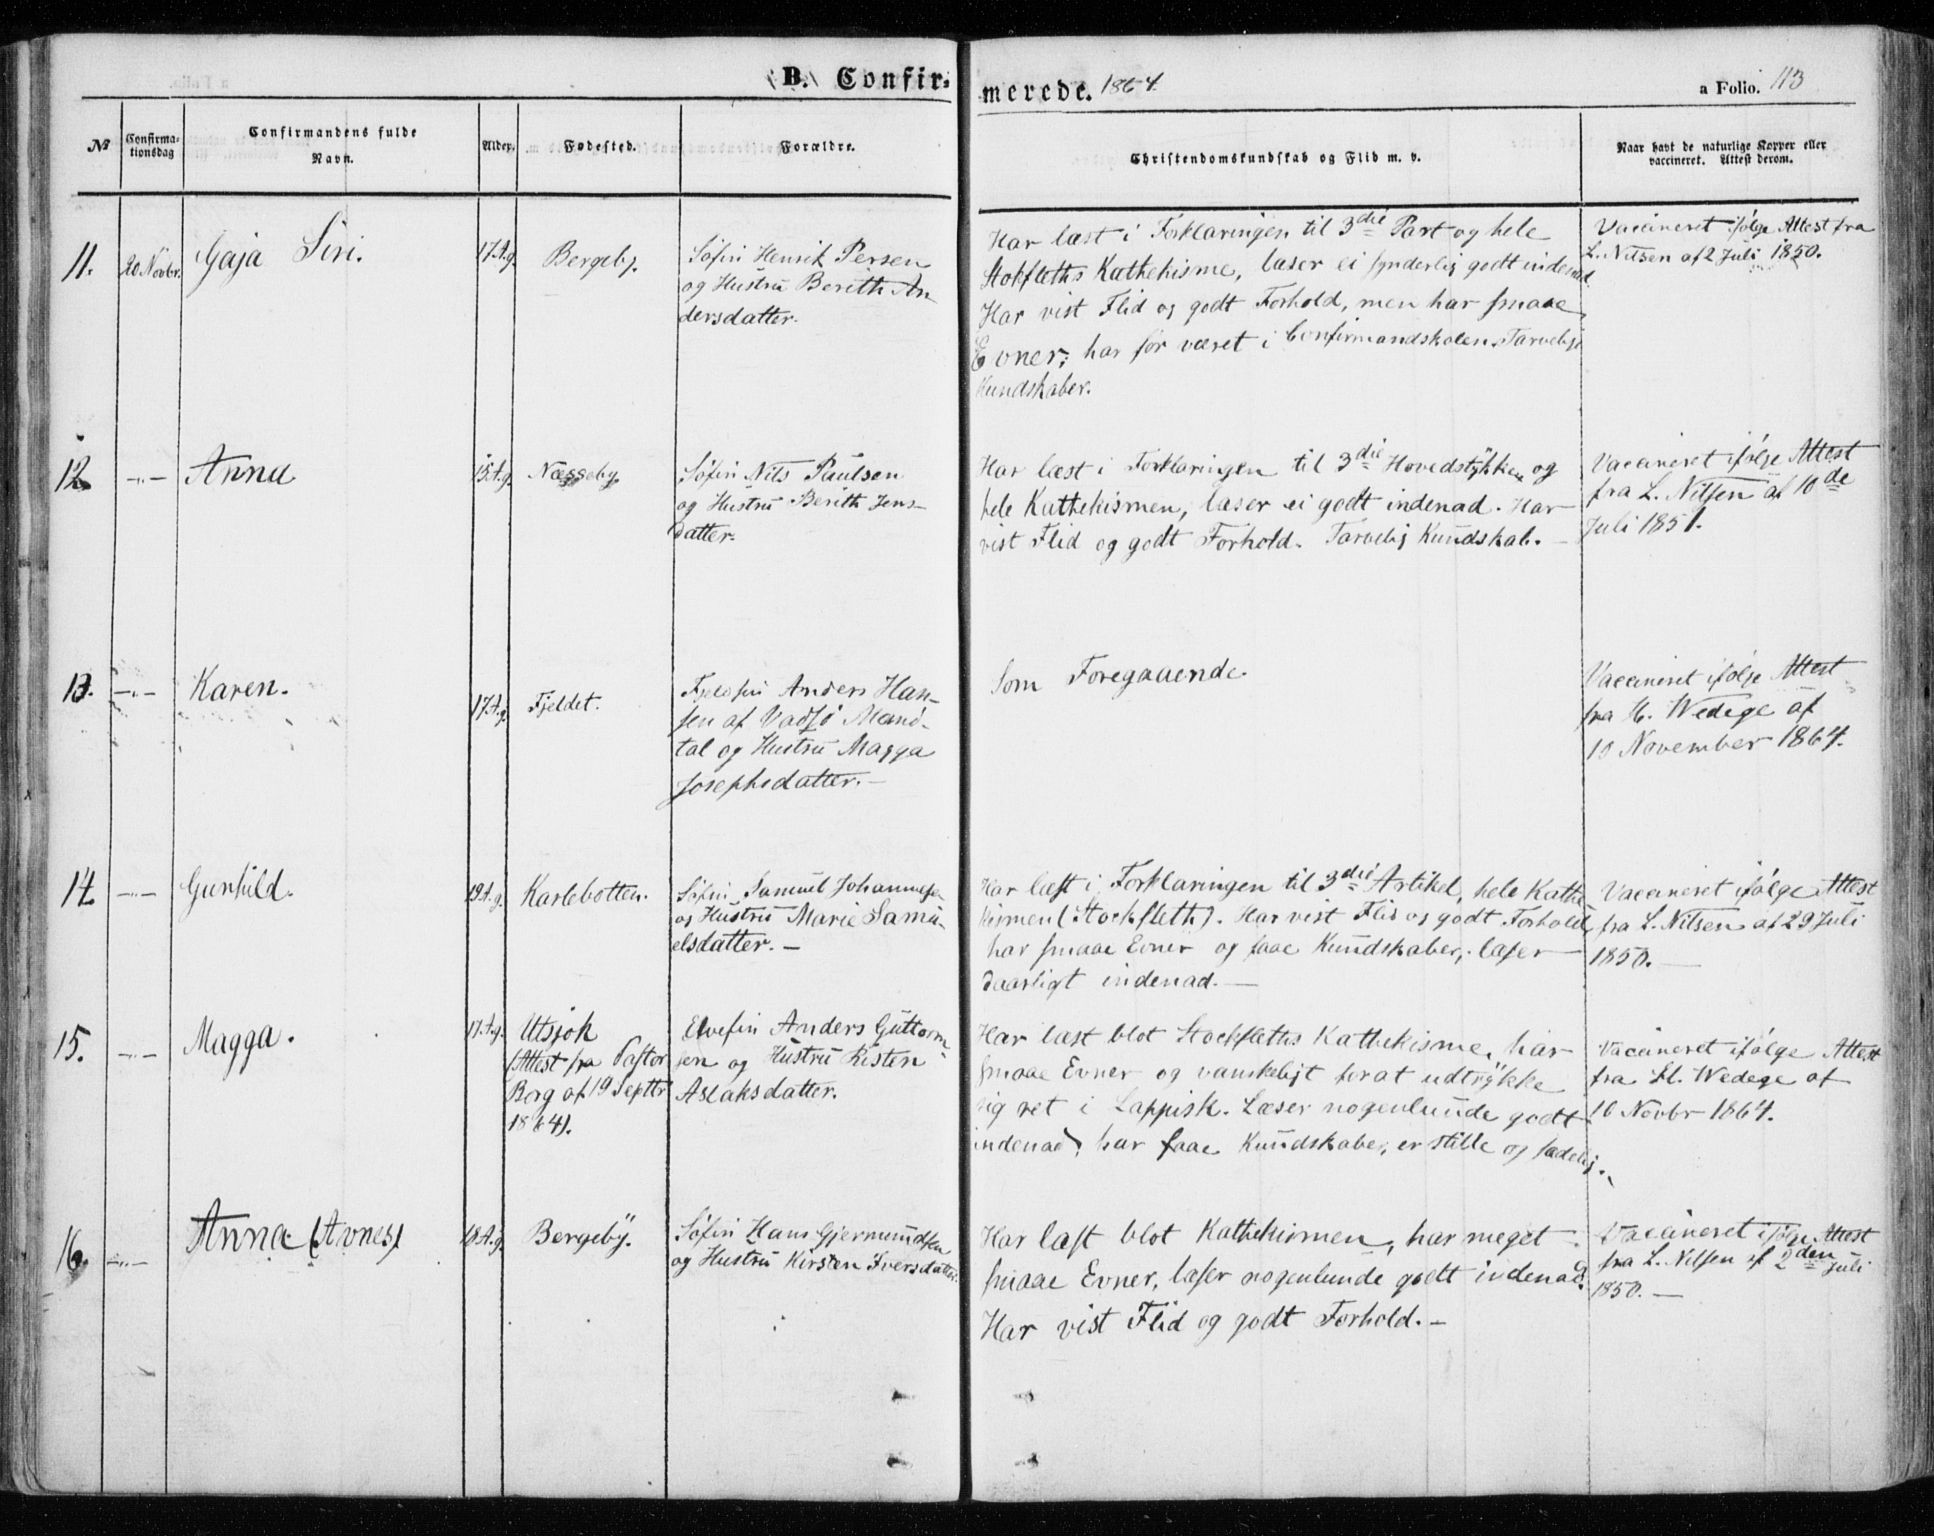 B. Confirmerede. 1864.
a Folio. 113
No
Confirmationsdag
Confirmandens fulde Navn.
Alder.
Fødested.
Forældre.
Christendomskundskab og Flid m. v.
Naar havt de naturlige Kopper eller vaccineret. Attest derom.
11.
20 Novbr.
Gaja Siri.
17 A.g.
Bergeby.
Søfin Henrik Persen
og Hustru Berith An-
dersdatter.
Har læst i Forklaringen til 3die Part og hele
Stokfleths Kathekisme, læser ei synderlig godt indenad
Har vist Flid og godt Forhold, men har smaae
Evner; har før været i Confirmandskolen. Tarvelige
Kundskaber.
Vaccineret ifølge Attest fra
L. Nilsen af 2 Juli 1850.
12.
-"-
Anna
15 A.g.
Næsseby.
Søfin Nils Paulsen
og Hustru Berith Jens-
datter.
Har læst i Forklaringen til 3die Hovedstykke og
hele Kathekismen, læser ei godt indenad. Har
vist Flid og godt Forhold. Tarvelig Kundskab. -
Vaccineret ifølge Attest
fra L. Nilsen af 10de
Juli 1851.
13.
-"-
Karen.
17 A.g.
Fjeldet.
Fjeldfin Anders Han-
sen af Vadsø Mand-
tal og Hustru Magga
Josephsdatter. -
Som Foregaaende
Vaccineret ifølge Attest
fra H. Wedege af
10 November 1864.
14
-"-
Gunhild.
19 A.g.
Karlebotten.
Søfin Samuel Johannesen
og Hustru Marie Samu-
elsdatter. -
Har læst i Forklaringen til 3die Artikel, hele Kathe-
kismen (Stockfleth). Har vist Flid og godt Forhold,
har smaae Evner og faae Kundskaber, læser
daarligt indenad. -
Vaccineret ifølge Attest
fra L. Nilsen af 29 Juli
1850. -
15.
-"-
Magga.
17 A.g.
Utsjok
(Attest fra Pastor
Borg af 19 Septbr
1864).
Elvefin Anders Guttorm-
sen og Hustru Risten
Aslaksdatter.
Har læst blot Stockfleths Kathekisme, har
smaae Evner og vanskeligt for at udtrykke
sig ret i Lappisk. Læser nogenlunde godt
indenad, har faae Kundskaber, er stille og sædelig.
Vaccineret ifølge Attest
fra H. Wedege af
10 Novbr 1864.
16.
-"-
Anna (Avnes)
18 A.g.
Bergeby.
Søfin Hans Gjermundsen
og Hustru Kirsten Iversdatter.
Har læst blot Kathekismen, har meget
smaae Evner, læser nogenlunde godt indenad.
Har vist Flid og godt Forhold. -
Vaccineret ifølge Attest
fra L. Nilsen af 2den Juli
1850. -